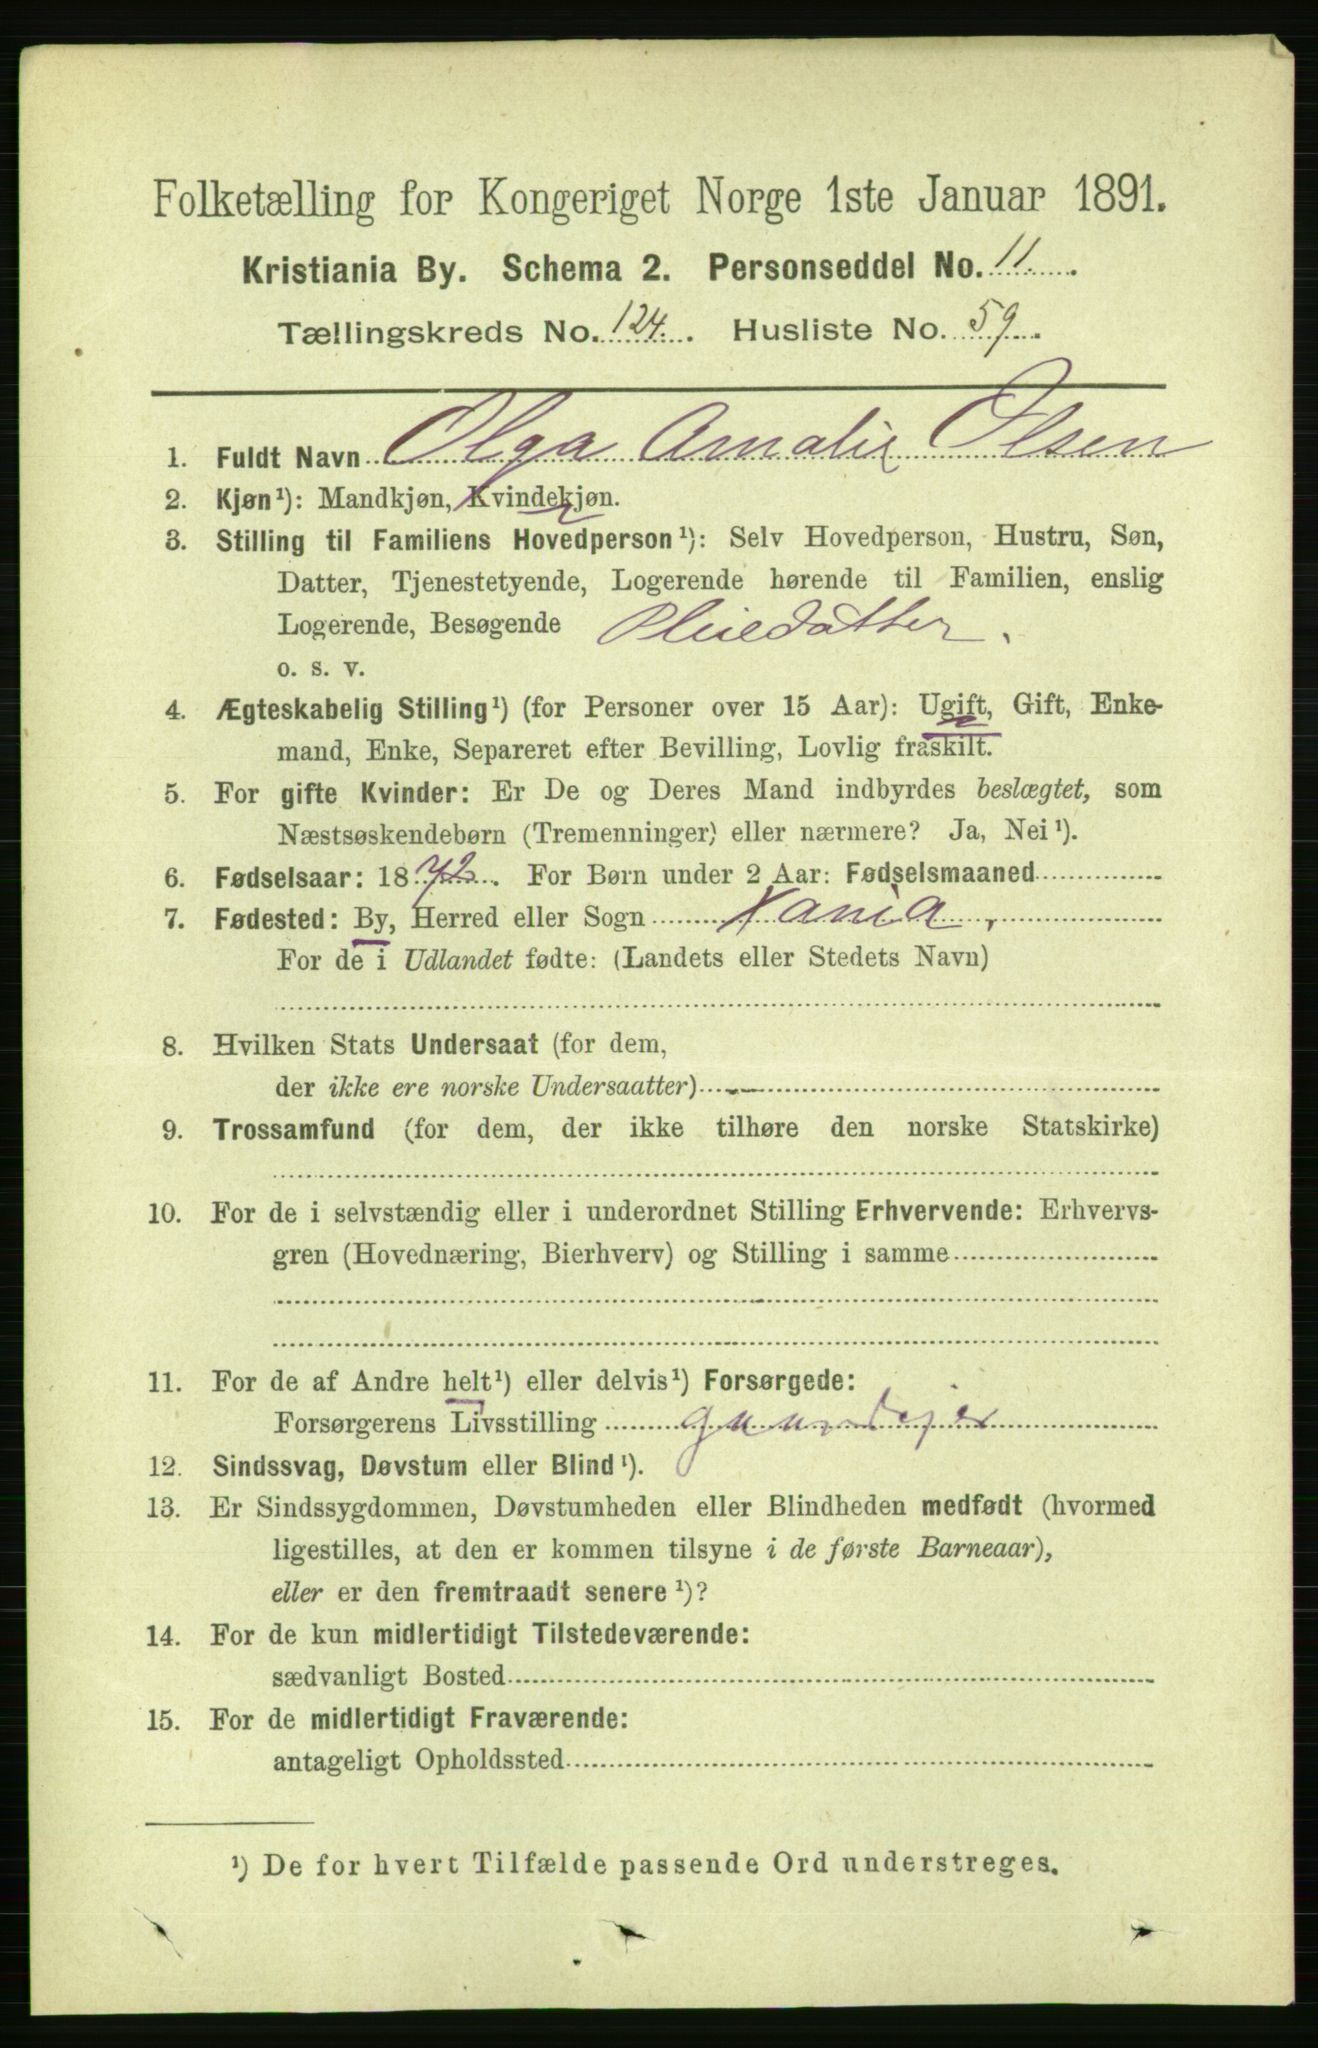 Folketælling for Kongeriget Norge 1ste Januar 1891.
Kristiania By. Schema 2. Personseddel No. 11.
Tællingskreds No. 124. Husliste No. 59.
1. Fuldt Navn Olga Amalie Olsen
2. Kjøn¹): Mandkjøn, Kvindekjøn.
3. Stilling til Familiens Hovedperson¹): Selv Hovedperson, Hustru, Søn,
Datter, Tjenestetyende, Logerende hørende til Familien, enslig
Logerende, Besøgende Pleiedatter.
o. s. v.
4. Ægteskabelig Stilling¹) (for Personer over 15 Aar): Ugift, Gift, Enke-
mand, Enke, Separeret efter Bevilling, Lovlig fraskilt.
5. For gifte Kvinder: Er De og Deres Mand indbyrdes beslægtet, som
Næstsøskendebørn (Tremenninger) eller nærmere? Ja, Nei¹).
6. Fødselsaar: 1872. For Børn under 2 Aar: Fødselsmaaned
7. Fødested: By, Herred eller Sogn Xania.
For de i Udlandet fødte: (Landets eller Stedets Navn)
8. Hvilken Stats Undersaat (for dem,
der ikke ere norske Undersaatter)
9. Trossamfund (for dem, der ikke tilhøre den norske Statskirke)
10. For de i selvstændig eller i underordnet Stilling Erhvervende: Erhvervs-
gren (Hovednæring, Bierhverv) og Stilling i samme
11. For de af Andre helt¹) eller delvis¹) Forsørgede:
Forsørgerens Livsstilling
12. Sindssvag, Døvstum eller Blind¹).
13. Er Sindssygdommen, Døvstumheden eller Blindheden medfødt (hvormed
ligestilles, at den er kommen tilsyne i de første Barneaar),
eller er den fremtraadt senere¹)?
14. For de kun midlertidigt Tilstedeværende:
sædvanligt Bosted
15. For de midlertidigt Fraværende:
antageligt Opholdssted
¹) De for hvert Tilfælde passende Ord understreges.